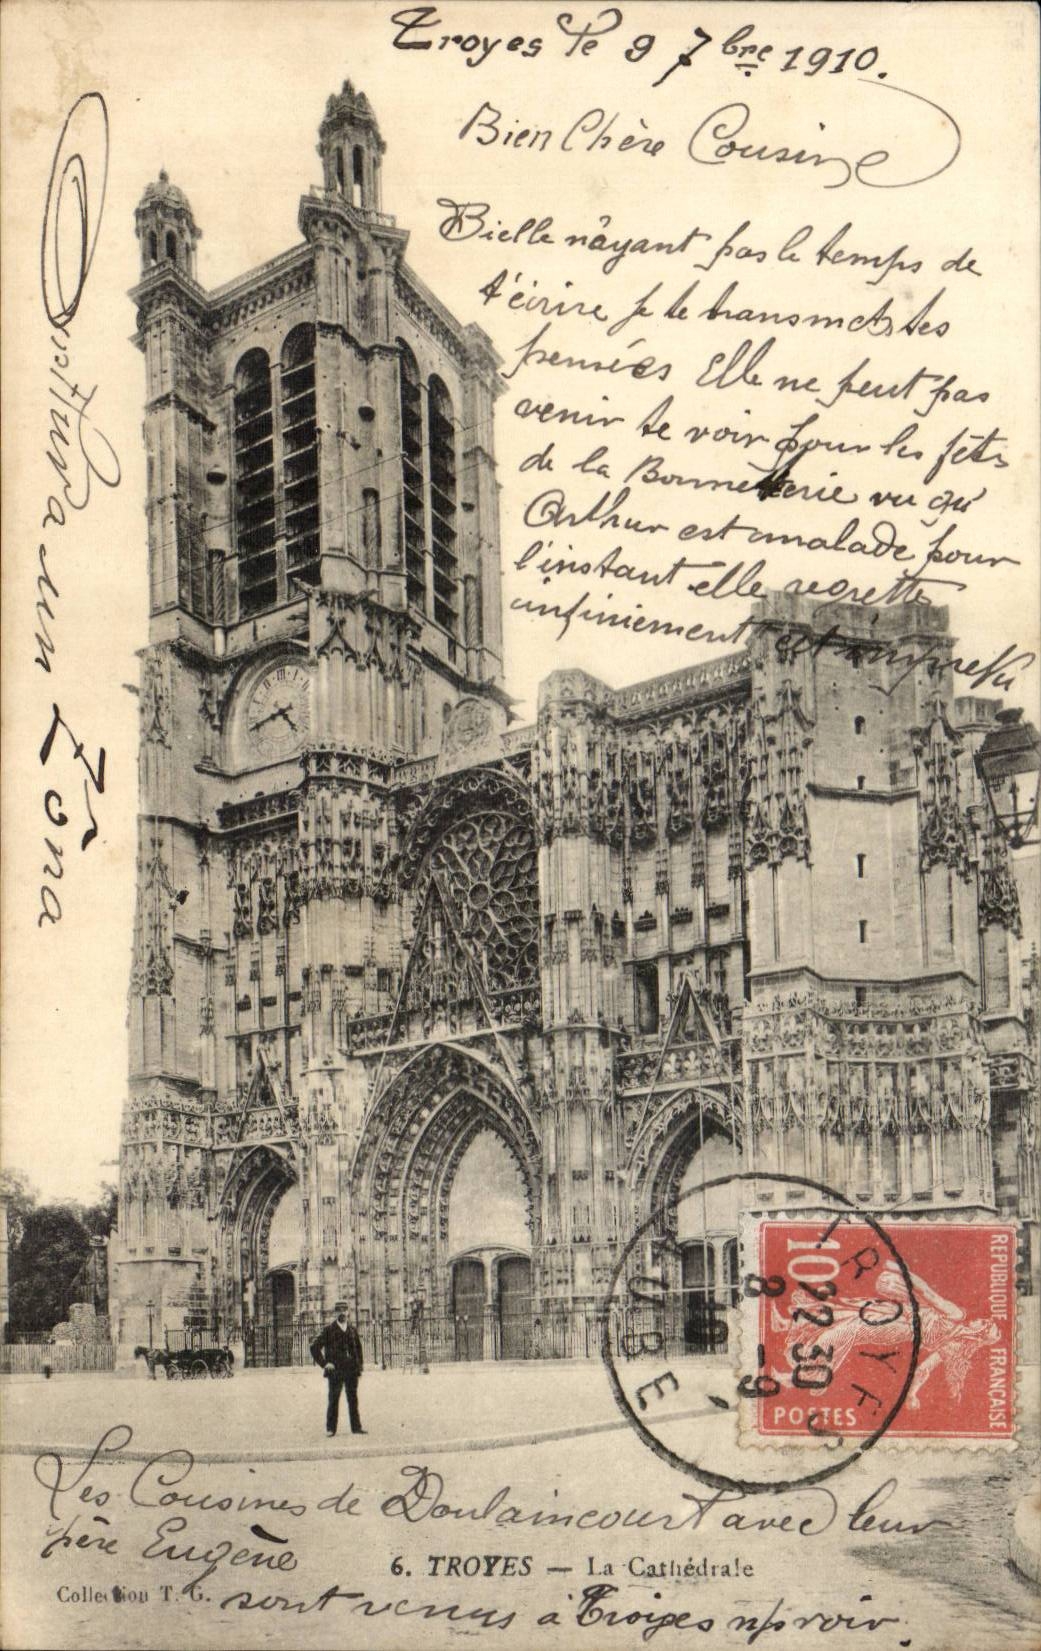 Troyes le 9 7bre 1910.
Bien Chère Cousine
Bielle nâyant pas le temps de
t'écrire je te transmets tes
pensées Elle ne peut pas
venir te voir pour les fêtes
de la Bonneterie vu qu'
Arthur est malade pour
l'instant elle regrette
infiniement cet imprévu
Arthur a un Zona
6. TROYES — La Cathédrale
Collection T. G.
Les Cousines de Doulaincourt avec leur
père Eugène
sont venus à Troyes n/s voir.
TROYES
AUBE
22 30
8 -9
10
10
REPUBLIQUE FRANÇAISE
POSTES